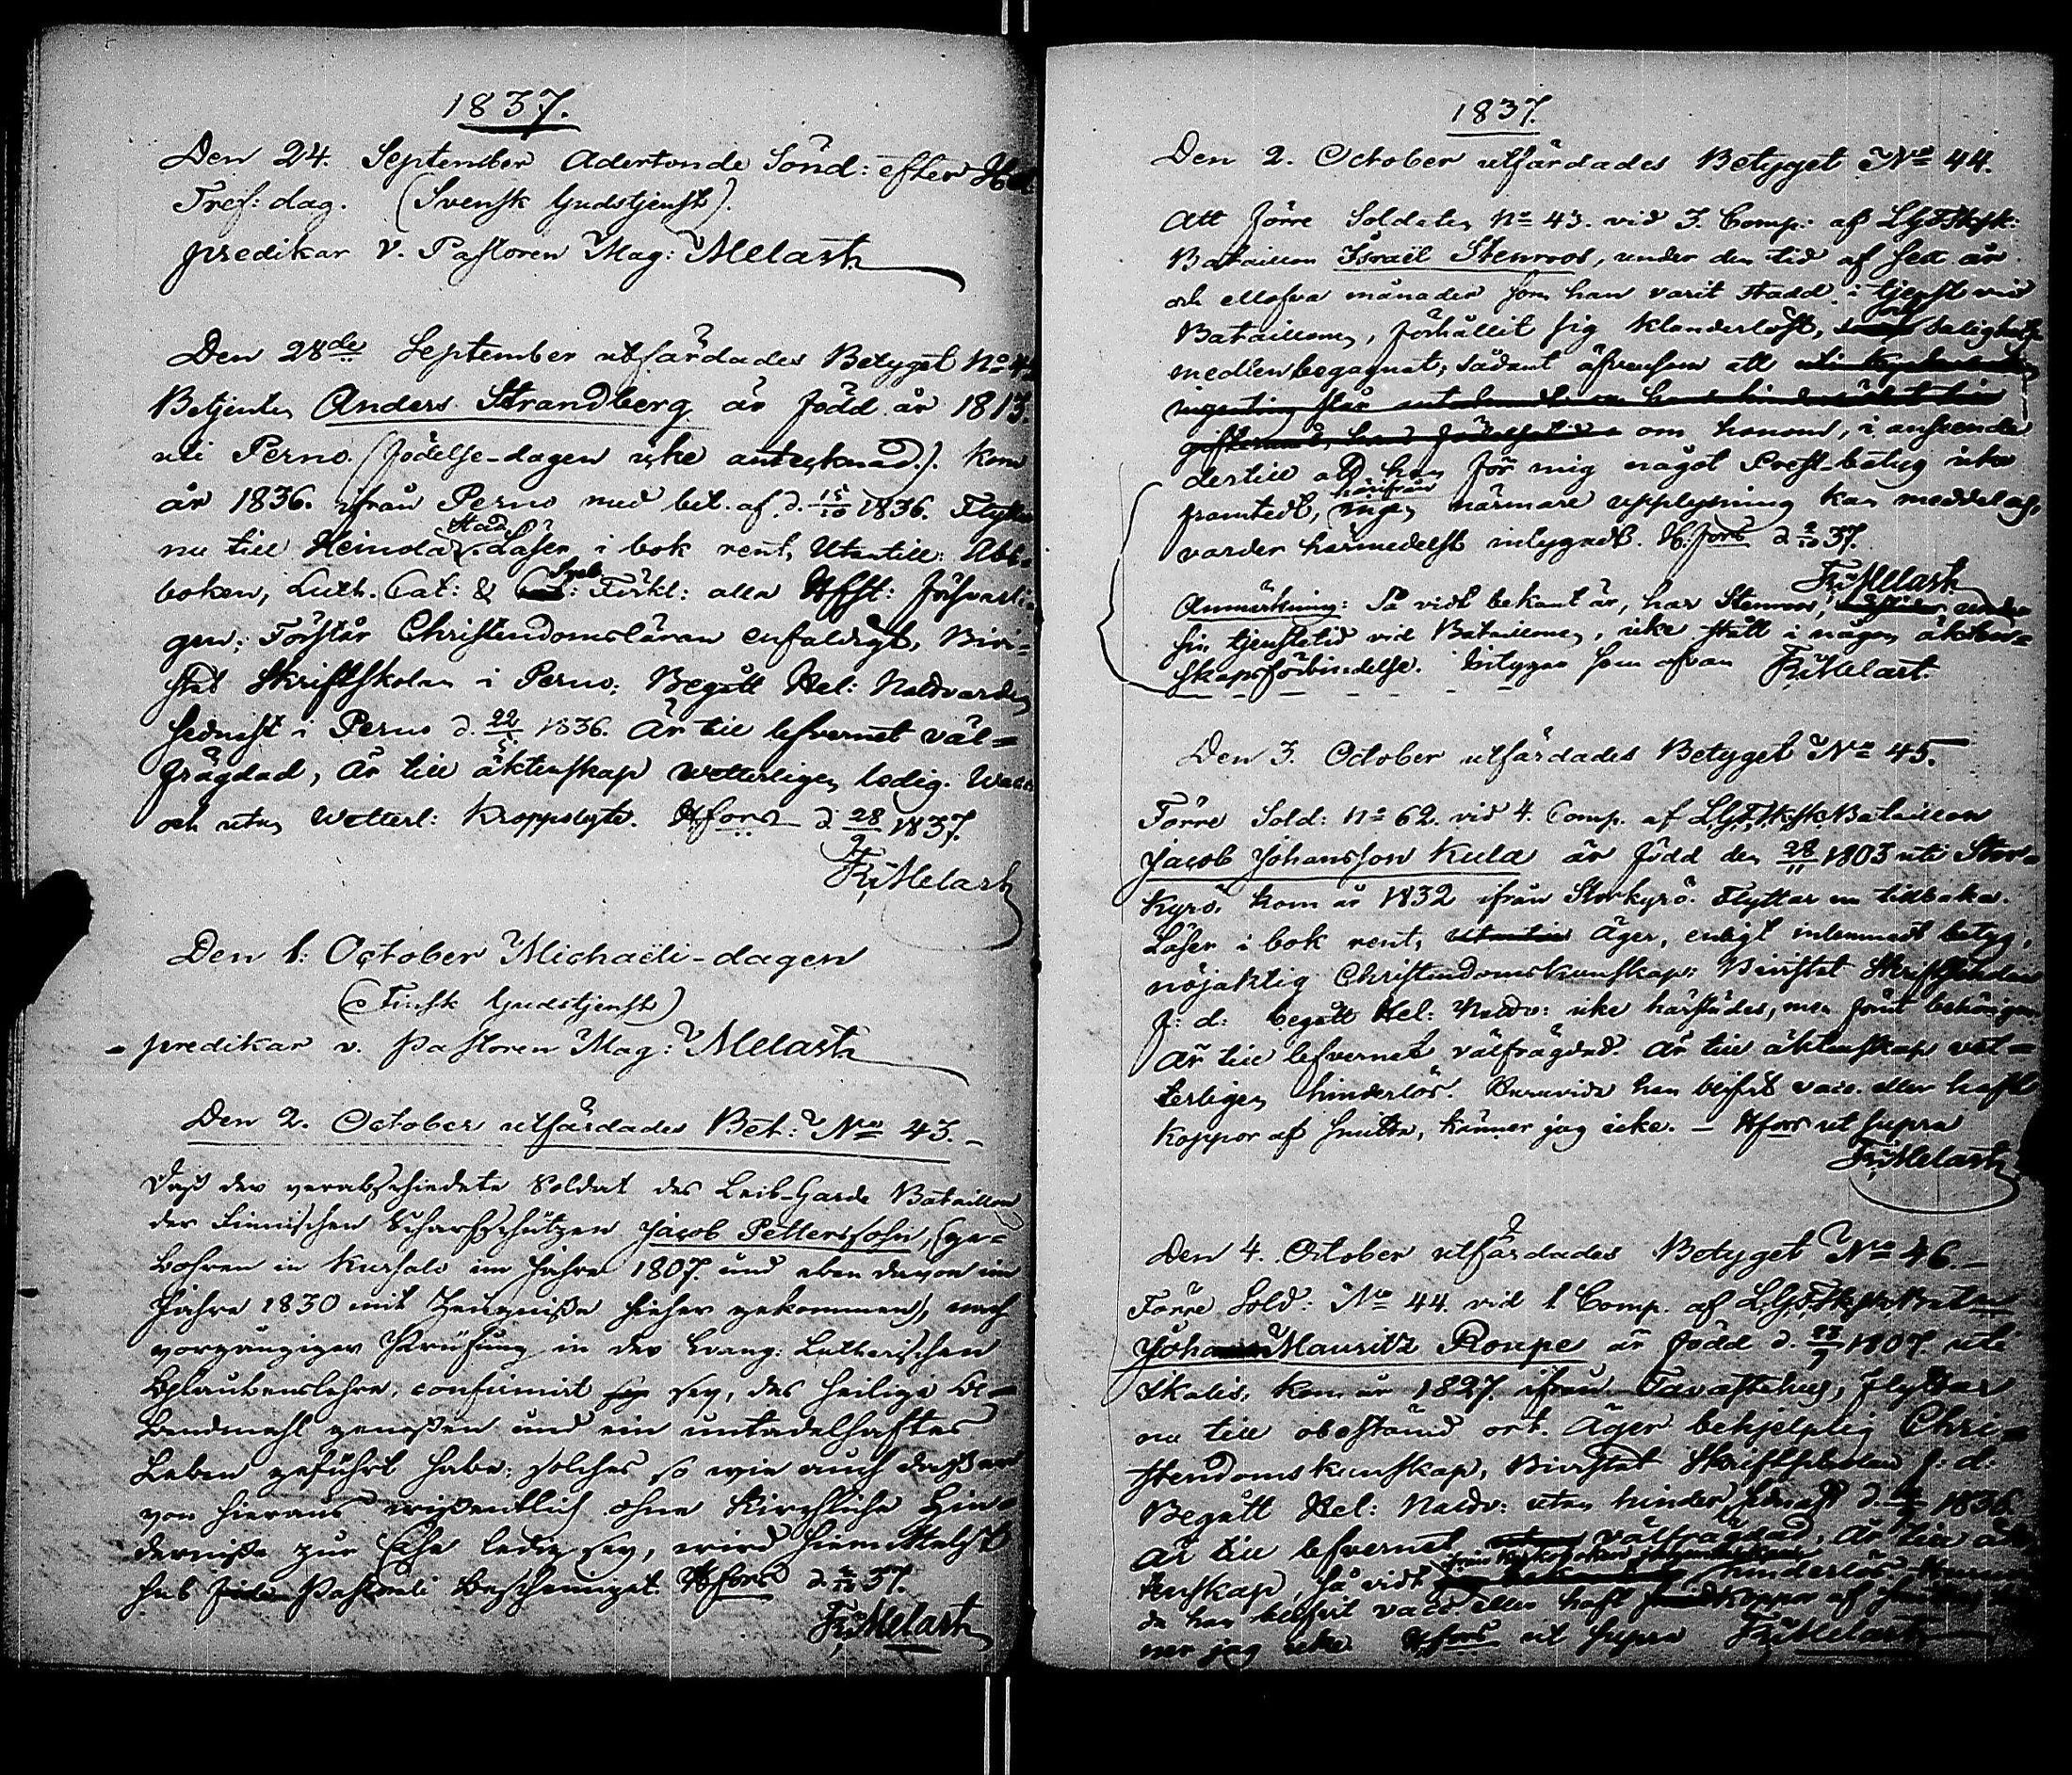 1837.
Den 24. September Adertonde Sönd: efter Hel
Tref: dag. (Svensk Gudstjenst).
predikar v. Pastoren Mag: Melart
Den 28de September utfärdades Betyget No 42
Betjenten Anders Strandberg är född år 1813.
uti Perno. (födelse-dagen icke antecknad.). Kom
år 1836. ifrån Perno med bet. af d. 15/10 1836. Flyttar
nu till Heinola Stad. Läser i bok rent, Utantill: Abc-
boken, Luth. Cat: & Sveb: Förkl: alla Hfst: försvarli-
gen; Förstår Christendomsläran enfaldigt, Bivi-
stat Skriftskolan i Perno; Begått Hel: Nattvarden
sednast i Perno d. 22/5 1836. Är till lefvernet väl-
frägdad, Är till äktenskap Wetterligen ledig. Wacc:
och utan Wetterl: Kroppslyte. Hfors d. 28/9 1837.
Fr: Melart
Den 1: October Michaëli-dagen
(Finsk Gudstjenst)
predikar v. Pastoren Mag: Melart
Den 2. October utfärdades Bet: No 43.
Daß der verabschiedete Soldat des Leib-Garde Bataillons
der Finnischen Scharfschützen Jacob Pettersohn, (ge-
bohren in Kursalo im Jahre 1807. und eben davon im
Jahre 1830 mit Zeugniße hieher gekommen), nach
vorgängiger Prüfung in der Evang: Lutherischen
Glaubenslehre, confirmirt sey, das heilige A-
bendmahl genoßen und ein untadelhaftes
Leben geführt habe; solches so wie auch daß er
von hieraus wißentlich ohne Kirchliche Hin-
derniße zur Ehe ledig sey, wird hiemittelst
sub Pastorali bescheiniget. Hfors d. 2/10 37.
Fr: Melart
1837.
Den 2. October utfärdades Betyget No 44.
Att förre Soldaten No 43. vid 3. Comp: af LGFSksk:
Bataillon Israël Stenroos, under den tid af sex år
och ellofva månader som han varit stadd i tjenst vid
Bataillonen, förhållit sig klanderlöst, salighets-
medlen begagnat; sådant äfvensom att
om honom, i anseende
dertill att han för mig något Prest-betyg icke
framtedt, härifrån ingen närmare upplysning kan meddelas,
varder härmedelst intygadt. H:fors d. 2/10 37.
Fr: Melart
Anmärkning: Så vidt bekant är, har Stenroos, under
sin tjenstetid vid Bataillonen, icke stått i någon äkten-
skapsförbindelse. Intygar som ofvan Fr: Melart.
Den 3. October utfärdades Betyget No 45.
Förre Sold: No 62. vid 4. Comp. af LGFSksk. Bataillon
Jacob Johansson Kula är född den 28/11 1803 uti Stor-
Kyrö; kom år 1832 ifrån Storkyrö. Flyttar nu tillbaka.
Läser i bok rent, Äger, enligt inlemnadt betyg,
nöjaktig Christendomskunskap; Bivistat Skriftskolan
f: d: begått Hel: Nattv: icke härstädes, men förut behörigen.
Är till lefvernet välfrägdad. Är till äktenskap vet-
terligen hinderlös. Huruvida han blifvit vacc. eller haft
koppor af smitta, känner jag icke. – Hfors ut supra
Fr: Melart
Den 4. October utfärdades Betyget No 46.
Förre Sold: No 44. vid 1 Comp. af LGFSksk. Bataln
Johan Mauritz Roupe är född d. 1807. uti
Kalis; kom år 1827. ifrån Tavastehus, flyttar
nu till obestämd ort. Äger behjelplig Chri-
stendomskunskap, Bivistat Skriftskolan f: d:
Begått Hel: Nattv: utan hinder sednast d. 1836.
Är till lefvernet välfrägdad, Är till äk-
tenskap, så vidt hinderlös. Huruvi-
da han blifvit vacc. eller haft koppor af smitta, kän-
ner jag icke. Hfors ut supra Fr: Melart